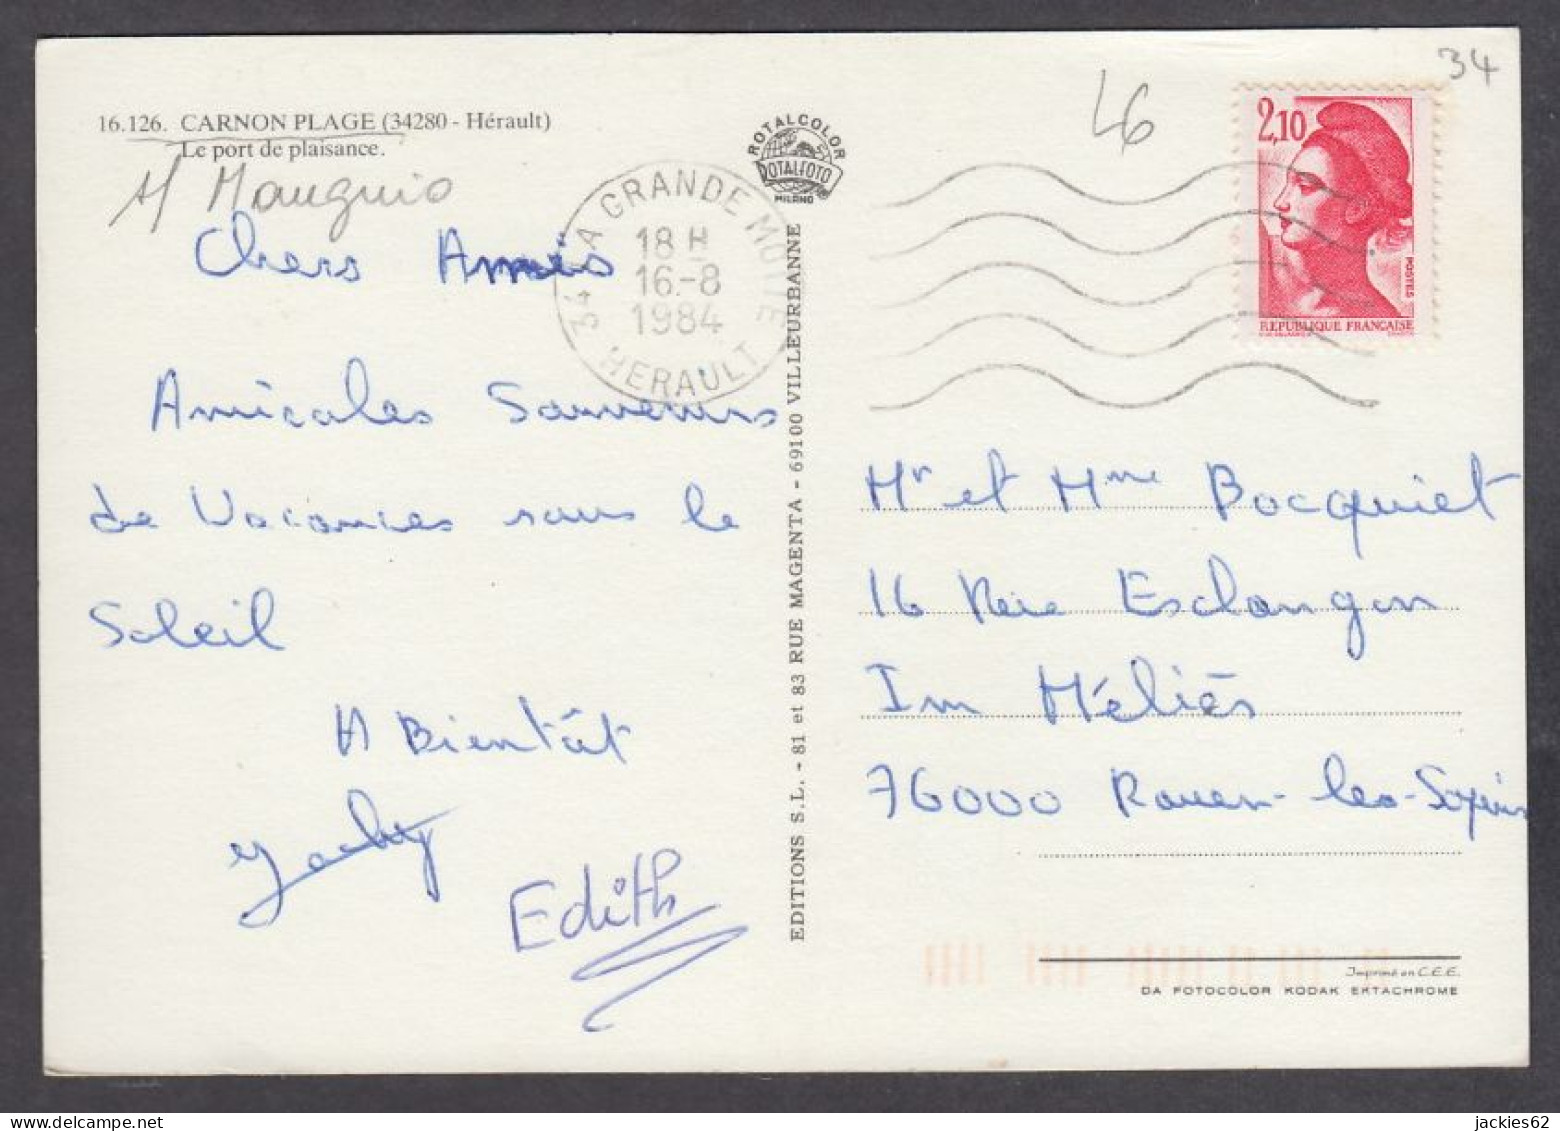 16.126. CARNON PLAGE (34280 - Hérault)
Le port de plaisance.
A/ Mauguio
Chers Amis
Amicales Souvenirs
de Vacances sous le
Soleil
A Bientôt
Jacky
Edith
ROTALCOLOR
ROTALFOTO
MILANO
34 LA GRANDE MOTTE
18 H
16-8
1984
HERAULT
EDITIONS S.L. - 81 et 83 RUE MAGENTA - 69100 VILLEURBANNE
46
34
2,10
POSTES
REPUBLIQUE FRANÇAISE
Mr et Mme Bocquiet
16 Rue Esclangon
Im Méliés
76000 Rouen-les-Sapins
Imprimé en C.E.E.
DA FOTOCOLOR KODAK EKTACHROME
jackies62